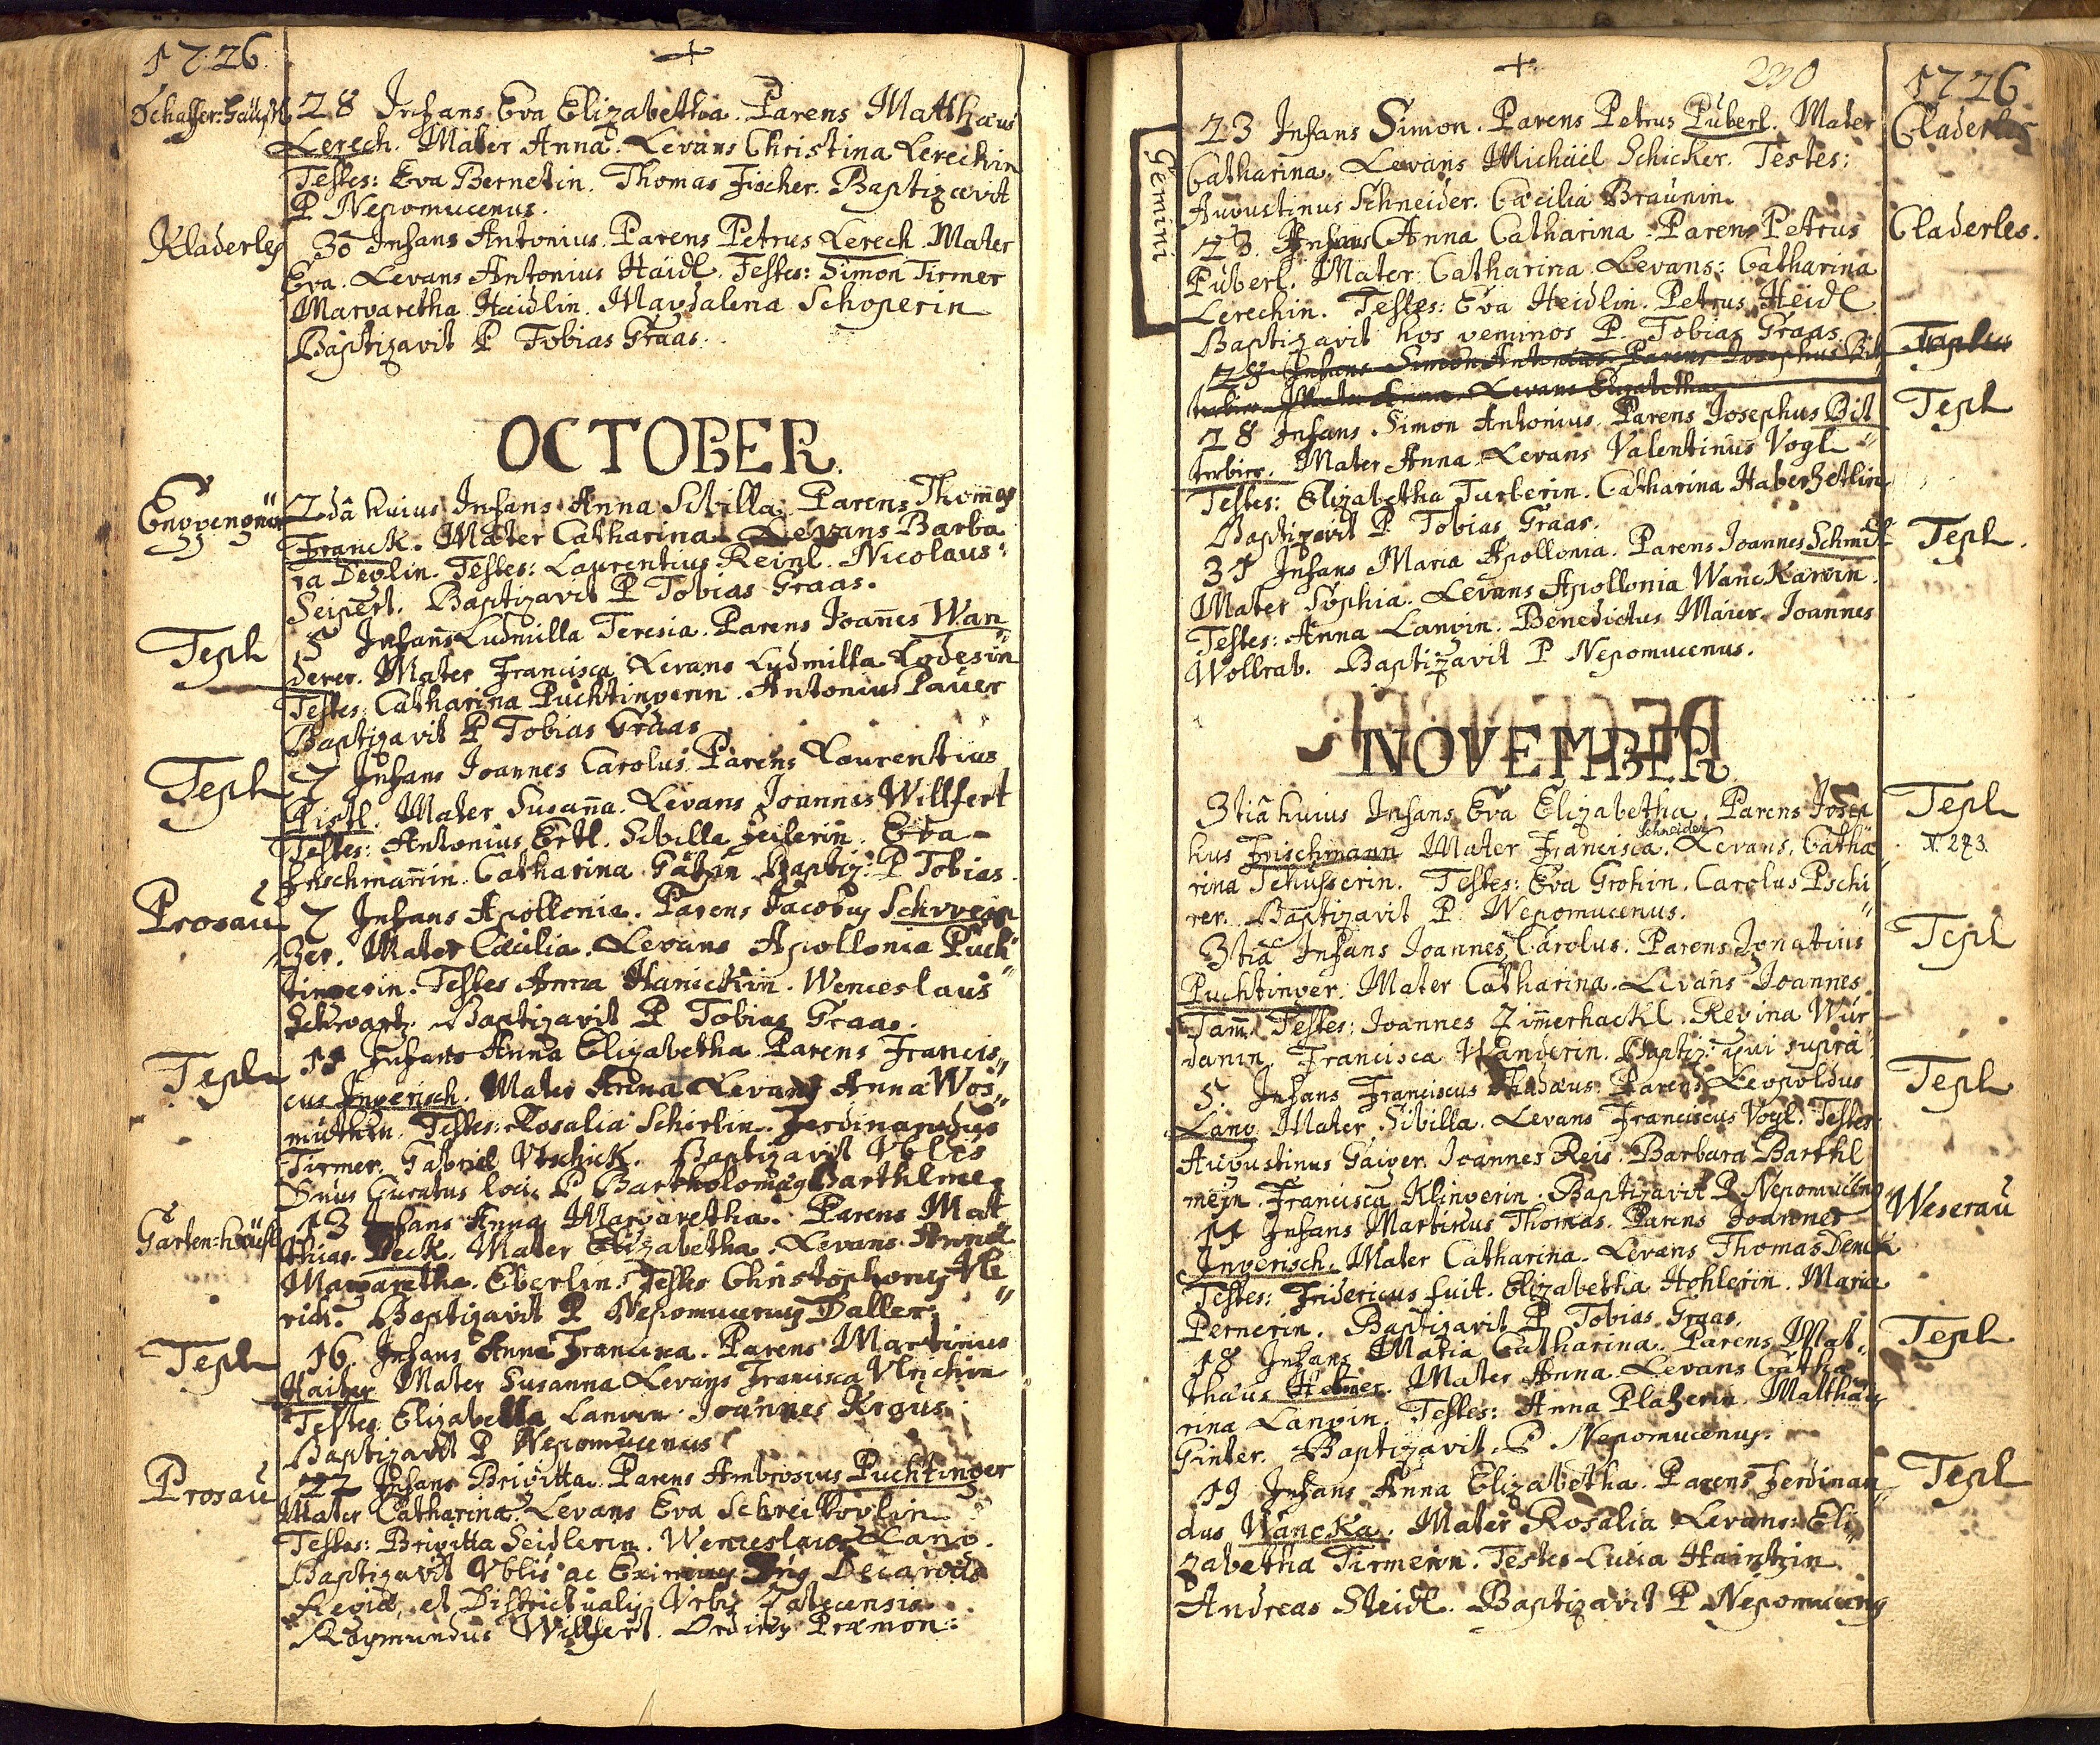 1726
+
Schaffer:häusl
28 Infans Eva Elizabetha. Parens Matthæus
Lerech. Mater Anna. Levans Christina Lerechin
Testes: Eva Bernetin. Thomas Fischer. Baptizavit
P Nepomucenus.
Kladerles
30 Infans Antonius. Parens Petrus Lerech. Mater
Eva. Levans Antonius Haidl. Testes: Simon Tirmer
Margaretha Haidlin. Magdalena Schoperin
Baptizavit P Tobias Graas.
OCTOBER.
2dâ huius Infans Anna Sibilla. Parens Thomas
Franck. Mater Catharina. Levans Barba
ra Deglin. Testes: Laurentius Reinl. Nicolaus
Seipert. Baptizavit P Tobias Graas.
Tepl
5 Infans Ludmilla Teresia. Parens Joannes Wan
derer. Mater Francisca. Levans Ludmilla Lodesin
Testes: Catharina Puchtingerin. Antonius Pauer
Baptizavit P Tobias Graas
Tepl
7 Infans Joannes Carolus. Parens Laurentius
Pistl. Mater Susanna. Levans Joannes Willfert
Testes: Antonius Ertl. Sibilla Feilerin. Eva
Frischmannin. Catharina Baptiz: P Tobias
Prosau
7 Infans Apollonia. Parens Jacobus Schwein
zer. Mater Cæcilia. Levans Apollonia Puch
tingerin. Testes Anna Hanickin. Wenceslaus
Schwartz. Baptizavit P Tobias Graas.
Tepl
11 Infans Anna Elizabetha. Parens Francis
cus Ingerisch. Mater Anna Levans Anna Wos
muthin. Testes: Rosalia Schirlin. Ferdinandus
Tirmer. Gabriel Utschick. Baptizavit Vblis
Dnus Curatus loci P Bartholomæus Barthlme
Garten:häusl
13 Infans Anna Margaretha. Parens Mat
thias Deck. Mater Elizabetha. Levans Anna
Margaretha Eberlin. Testes Christophorus Vl
rich. Baptizavit P Nepomucenus Daller
Tepl
16 Infans Anna Francisca. Parens Martinus
Haiber Mater Susanna Levans Francisca Vlrichin
Testes Elizabetha Langin. Joannes Kraus.
Baptizavit P Nepomucenus
Prosau
22 Infans Brigitta. Parens Ambrosius Puchtinger
Mater Catharina. Levans Eva Schreikoglin
Testes: Brigitta Seidlerin. Wenceslaus Lang.
Baptizavit Vblis ac Eximius Dnus Decanus
Regiæ, et Districtualis Urbis Zatecensis
Raymundus Willfert. Ordinis Præmon:
+
230
1726
Gemini
23 Infans Simon. Parens Petrus Puberl. Mater
Claderles
Catharina. Levans Michael Schicker. Testes:
Augustinus Schneider. Cæcilia Braunin.
23. Infans Anna Catharina. Parens Petrus
Claderles.
Puberl. Mater Catharina. Levans: Catharina
Lerechin. Testes: Eva Heidlin. Petrus Heidl
Baptizavit hos geminos P. Tobias Graas.
28 Infans Simon Antonius. Parens Josephus Bit
terbier. Mater Anna. Levans Elizabetha
28 Infans Simon Antonius. Parens Josephus Bit
Tepl
terbier. Mater Anna. Levans Valentinus Vogl
Testes: Elizabetha Turberin. Catharina Haberzetlin
Baptizavit P Tobias Graas.
31 Infans Maria Apollonia. Parens Joannes Schmidt
Tepl.
Mater Sophia. Levans Apollonia Wanckarin.
Testes: Anna Langin. Benedictus Maier. Joannes
Wolbrab. Baptizavit P Nepomucenus.
NOVEMBER
3tiâ huius Infans Eva Elizabetha. Parens Josep
Tepl
hus Frischmann Mater Francisca. Levans. Catha
Schneider
N. 273.
rina Schusserin. Testes: Eva Grohin. Carolus Pschi
rer. Baptizavit P. Nepomucenus.
3tiâ Infans Joannes Carolus. Parens Ignatius
Tepl
Puchtinger. Mater Catharina. Levans Joannes
Tamm. Testes: Joannes Zimmerhackl. Regina Wur
danin. Francisca Wanderin. Baptiz: qui supra
5. Infans Franciscus Thadæus. Parens Leopoldus
Tepl
Lang. Mater Sibilla. Levans Franciscus Vogl. Testes:
Augustinus Gaiger. Joannes Reis. Barbara Barthl
mein. Francisca Klingerin. Baptizavit P Nepomucenus
11 Infans Martinus Thomas. Parens Joannes
Weserau
Ingerisch. Mater Catharina. Levans Thomas Denck
Testes: Fridericus fuit. Elizabetha Hohlerin. Maria
Pernerin. Baptizavit P Tobias Graas.
18 Infans Maria Catharina. Parens Mat
Tepl
thæus Mater Anna. Levans Catha
rina Langin. Testes: Anna Plazerin. Matthæus
Ginter. Baptizavit P. Nepomucenus.
19 Infans Anna Elizabetha. Parens Ferdinan
Tepl
dus Wancka. Mater Rosalia Levans: Eli
zabetha Tirmerin. Testes Lucia Haintzin
Andreas Steidl. Baptizavit P Nepomucenus